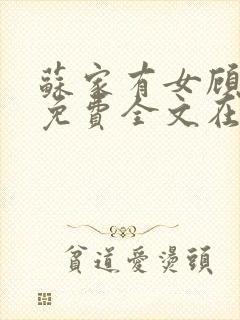 蘇家有女顾
免費全文在
貧道愛燙頭